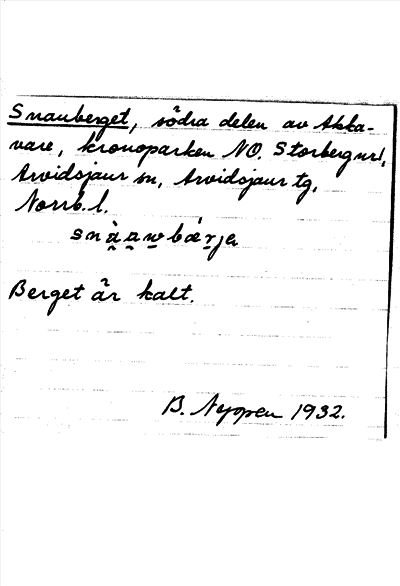 Snauberget, södra delen av Akka-
vare, kronoparken NO. Storberg nr 1,
Arvidsjaur sn, Arvidsjaur tg,
Norrb. l.
snàawbǽrja
Berget är kalt.
B. Nyppen 1932.